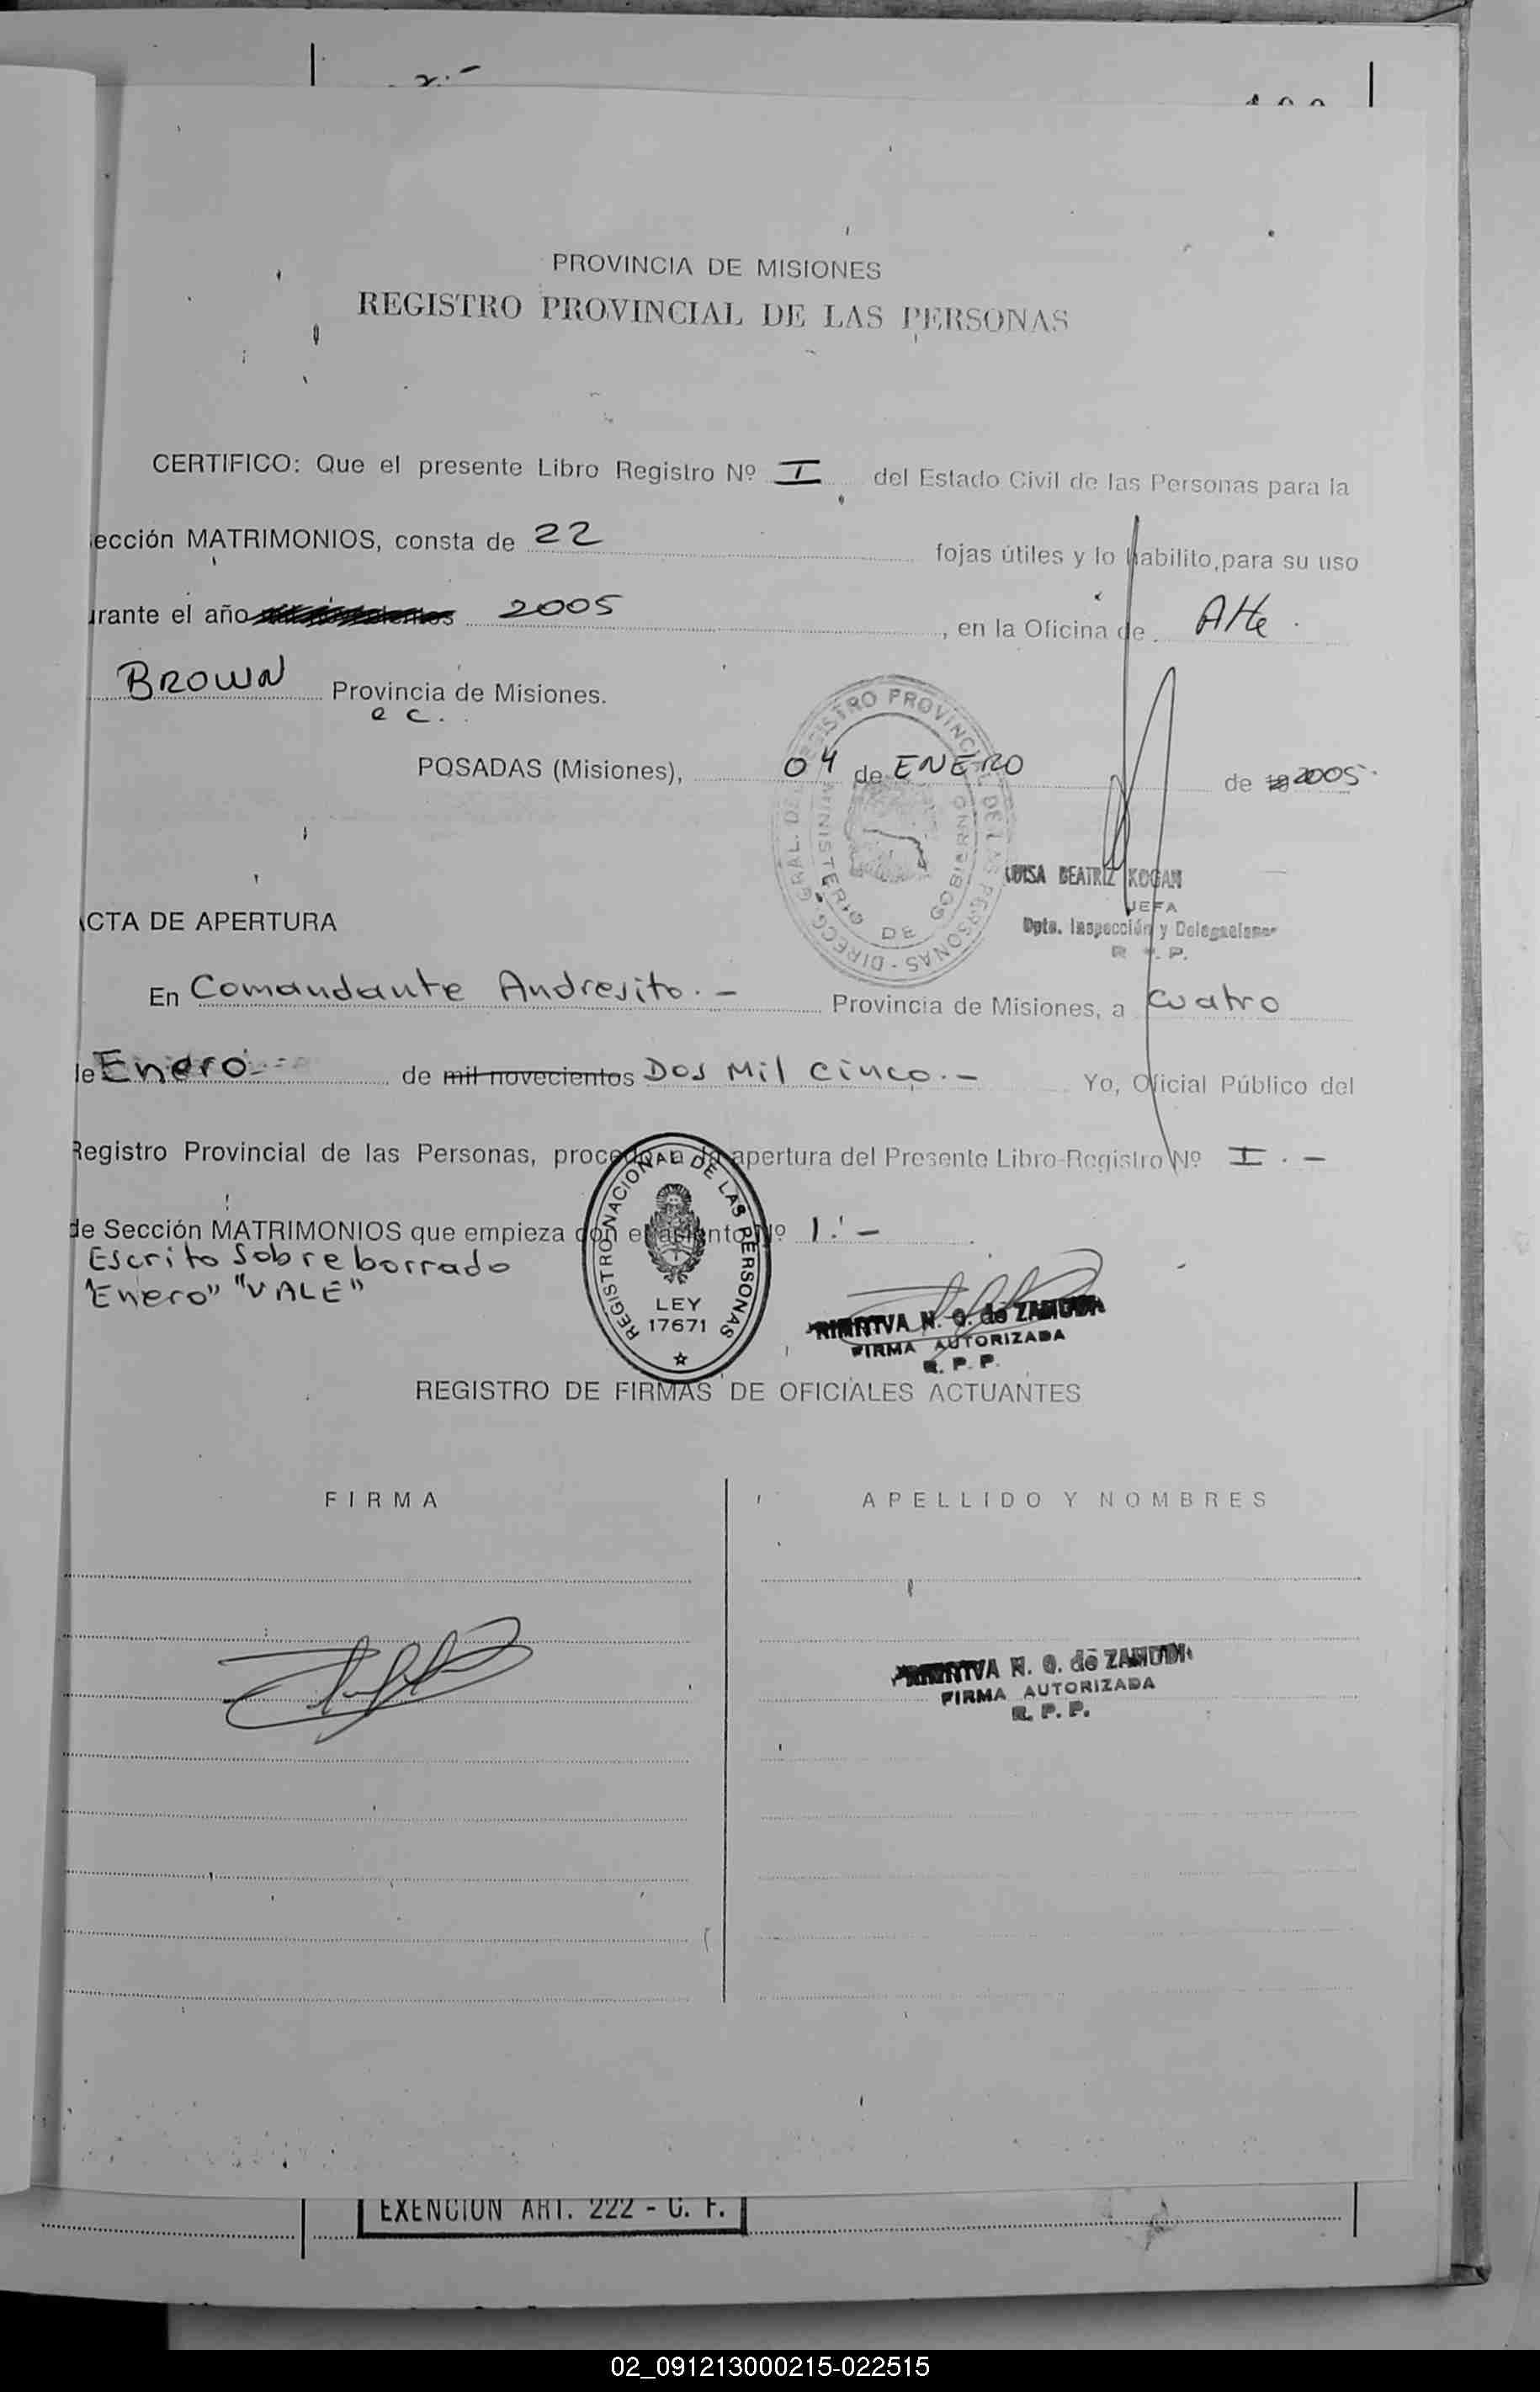 PROVINCIA DE MISIONES
REGISTRO PROVINCIAL DE LAS PERSONAS
CERTIFICO: Que el presente Libro Registro Nº I del Estado Civil de las Personas para la
ección MATRIMONIOS, consta de 22 fojas útiles y lo habilito, para su uso
urante el año 2005, en la Oficina de Alte.
BROWN Provincia de Misiones.
e c.
POSADAS (Misiones), 04 de ENERO de 2005.
REGISTRO PROVINCIAL DE LAS PERSONAS - DIRECC. GRAL. DEL
MINISTERIO DE GOBIERNO
LUISA BEATRIZ KOGAN
JEFA
Dpto. Inspección y Delegaciones
R. P. P.
ACTA DE APERTURA
En Comandante Andresito. - Provincia de Misiones, a cuatro
de Enero - de mil novecientos Dos Mil cinco. - Yo, Oficial Público del
Registro Provincial de las Personas, procedo a la apertura del Presente Libro-Registro Nº I . -
de Sección MATRIMONIOS que empieza con el asiento Nº 1. -
Escrito Sobre borrado
"Enero" "VALE"
REGISTRO NACIONAL DE LAS PERSONAS
LEY
17671
N. O. de ZAMUDIO
FIRMA AUTORIZADA
R. P. P.
REGISTRO DE FIRMAS DE OFICIALES ACTUANTES
FIRMA
APELLIDO Y NOMBRES
N. O. de ZAMUDIO
FIRMA AUTORIZADA
R. P. P.
EXENCION ART. 222 - C. F.
02_091213000215-022515